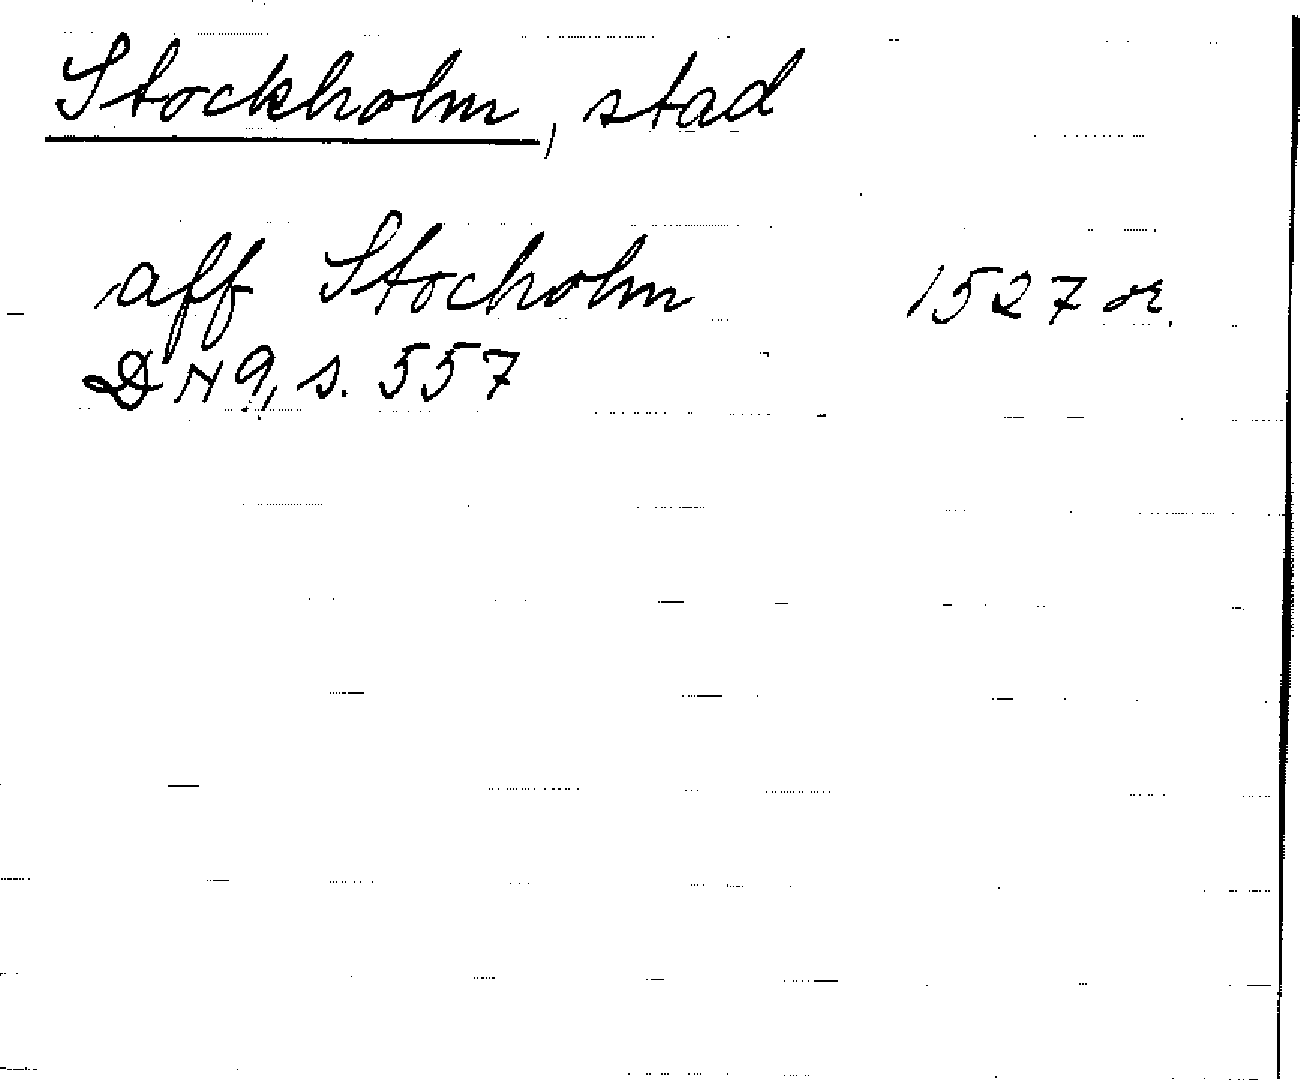 Stockholm, stad
aff Stocholm 1527 or.
DN 9, s. 557